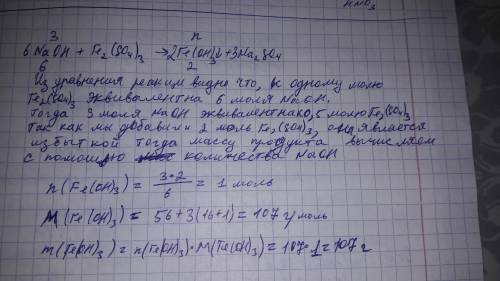 HNO₃
3 n
6NaOH + Fe₂(SO₄)₃ → 2Fe(OH)₃↓ + 3Na₂SO₄
6 2
Из уравнения реакции видно что, к одному молю
Fe₂(SO₄)₃ эквивалентна 6 моля NaOH.
Тогда 3 моля NaOH эквивалентна 0,5 молю Fe₂(SO₄)₃
Так как мы добавили 2 моль Fe₂(SO₄)₃, она является
избыткой тогда массу продукта вычисляем
с помощью количества NaOH
n(Fe(OH)₃) = 3·2/6 = 1 моль
M(Fe(OH)₃) = 56+3(16+1) = 107 г/моль
m(Fe(OH)₃) = n(Fe(OH)₃)·M(Fe(OH)₃) = 107·1 = 107 г